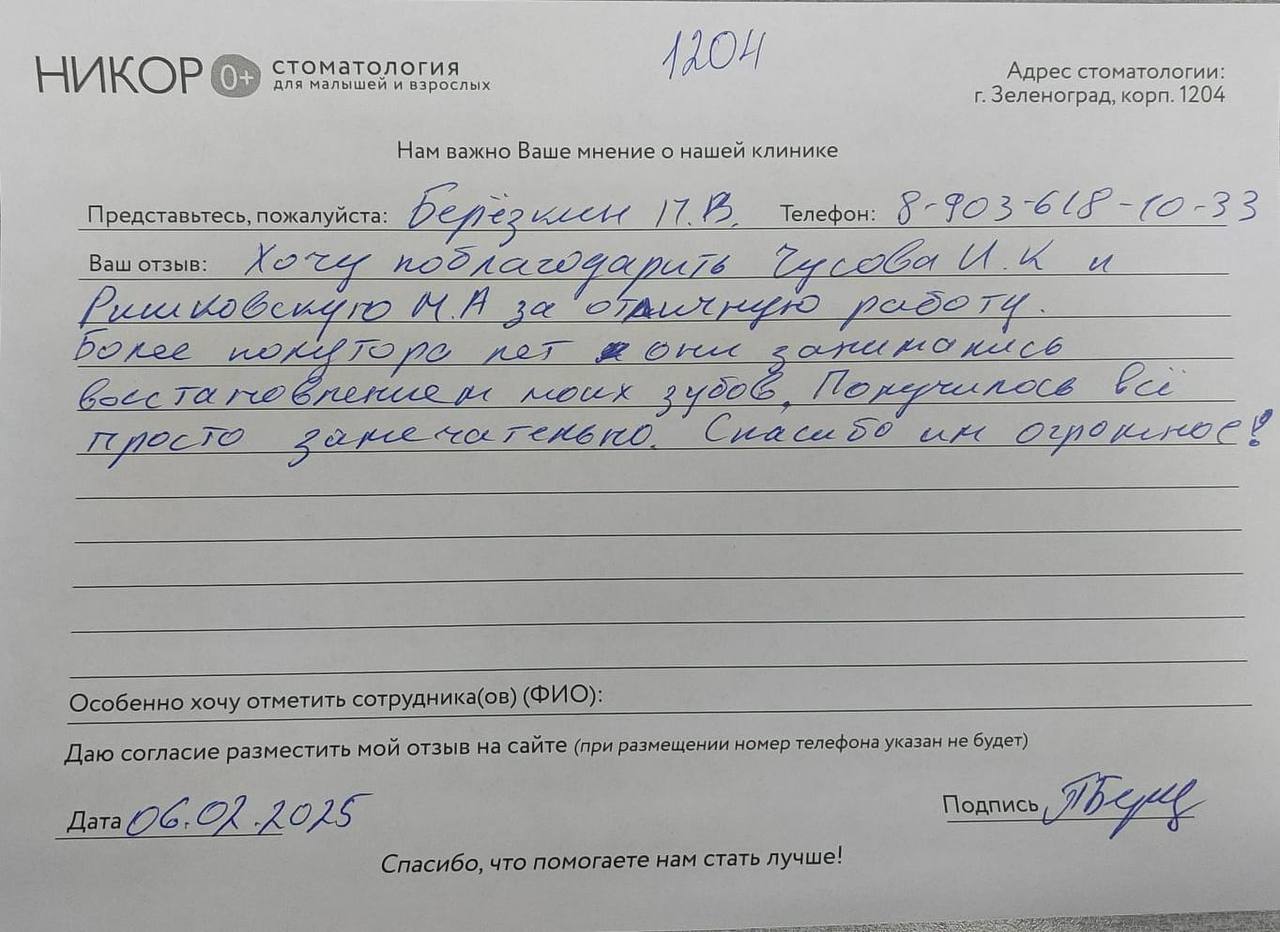 1204
НИКОР 0+ стоматология
для малышей и взрослых
Адрес стоматологии:
г. Зеленоград, корп. 1204
Нам важно Ваше мнение о нашей клинике
Представьтесь, пожалуйста: Берёзкин П.В. Телефон: 8-903-618-10-33
Ваш отзыв: Хочу поблагодарить Чусова И.К и
Ришковскую М.А за отличную работу.
Более полутора лет они занимались
восстановлением моих зубов. Получилось всё
просто замечательно. Спасибо им огромное!
Особенно хочу отметить сотрудника(ов) (ФИО):
Даю согласие разместить мой отзыв на сайте (при размещении номер телефона указан не будет)
Дата 06.02.2025
Подпись
Спасибо, что помогаете нам стать лучше!